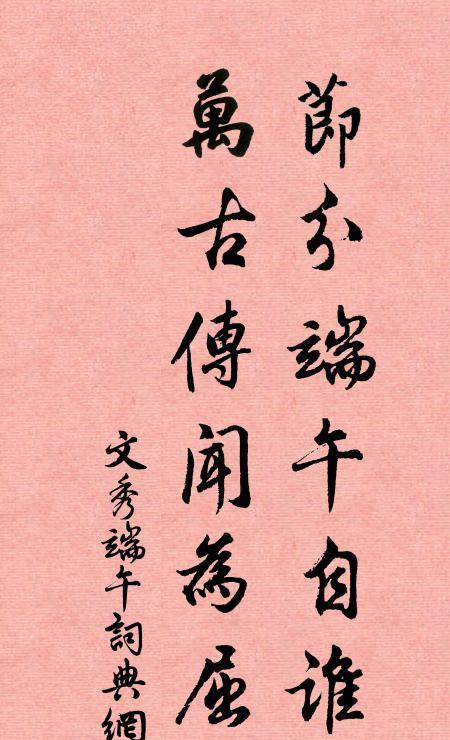 節分端午自誰
萬古傳聞為屈
文秀端午詞典網